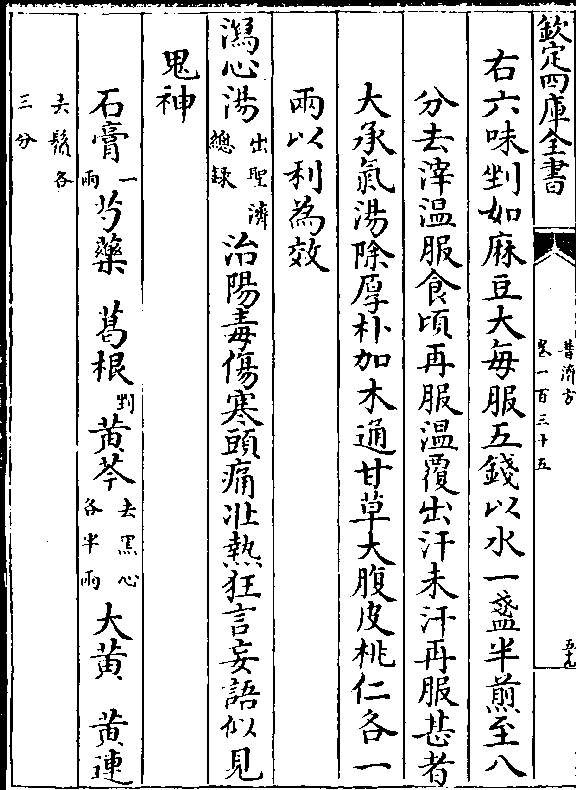 欽定四庫全書
普濟方
卷一百三十五
右六味剉如麻豆大每服五錢以水一盞半煎至八
分去滓温服食頃再服温覆出汗未汗再服甚者
大承氣湯除厚朴加木通甘草大腹皮桃仁各一
兩以利為效
瀉心湯出聖濟總録治陽毒傷寒頭痛壯熱狂言妄語似見
鬼神
石膏一兩芍藥 葛根剉黄芩去黑心各半兩大黄 黄連
去鬚各三分